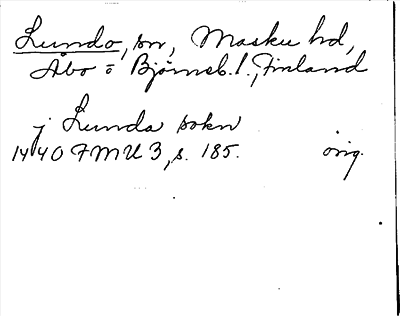 Lundo, sn, Masku hd,
Åbo o Björneb. l., Finland
j Lunda sokn
1440 FMU 3, s. 185. orig.